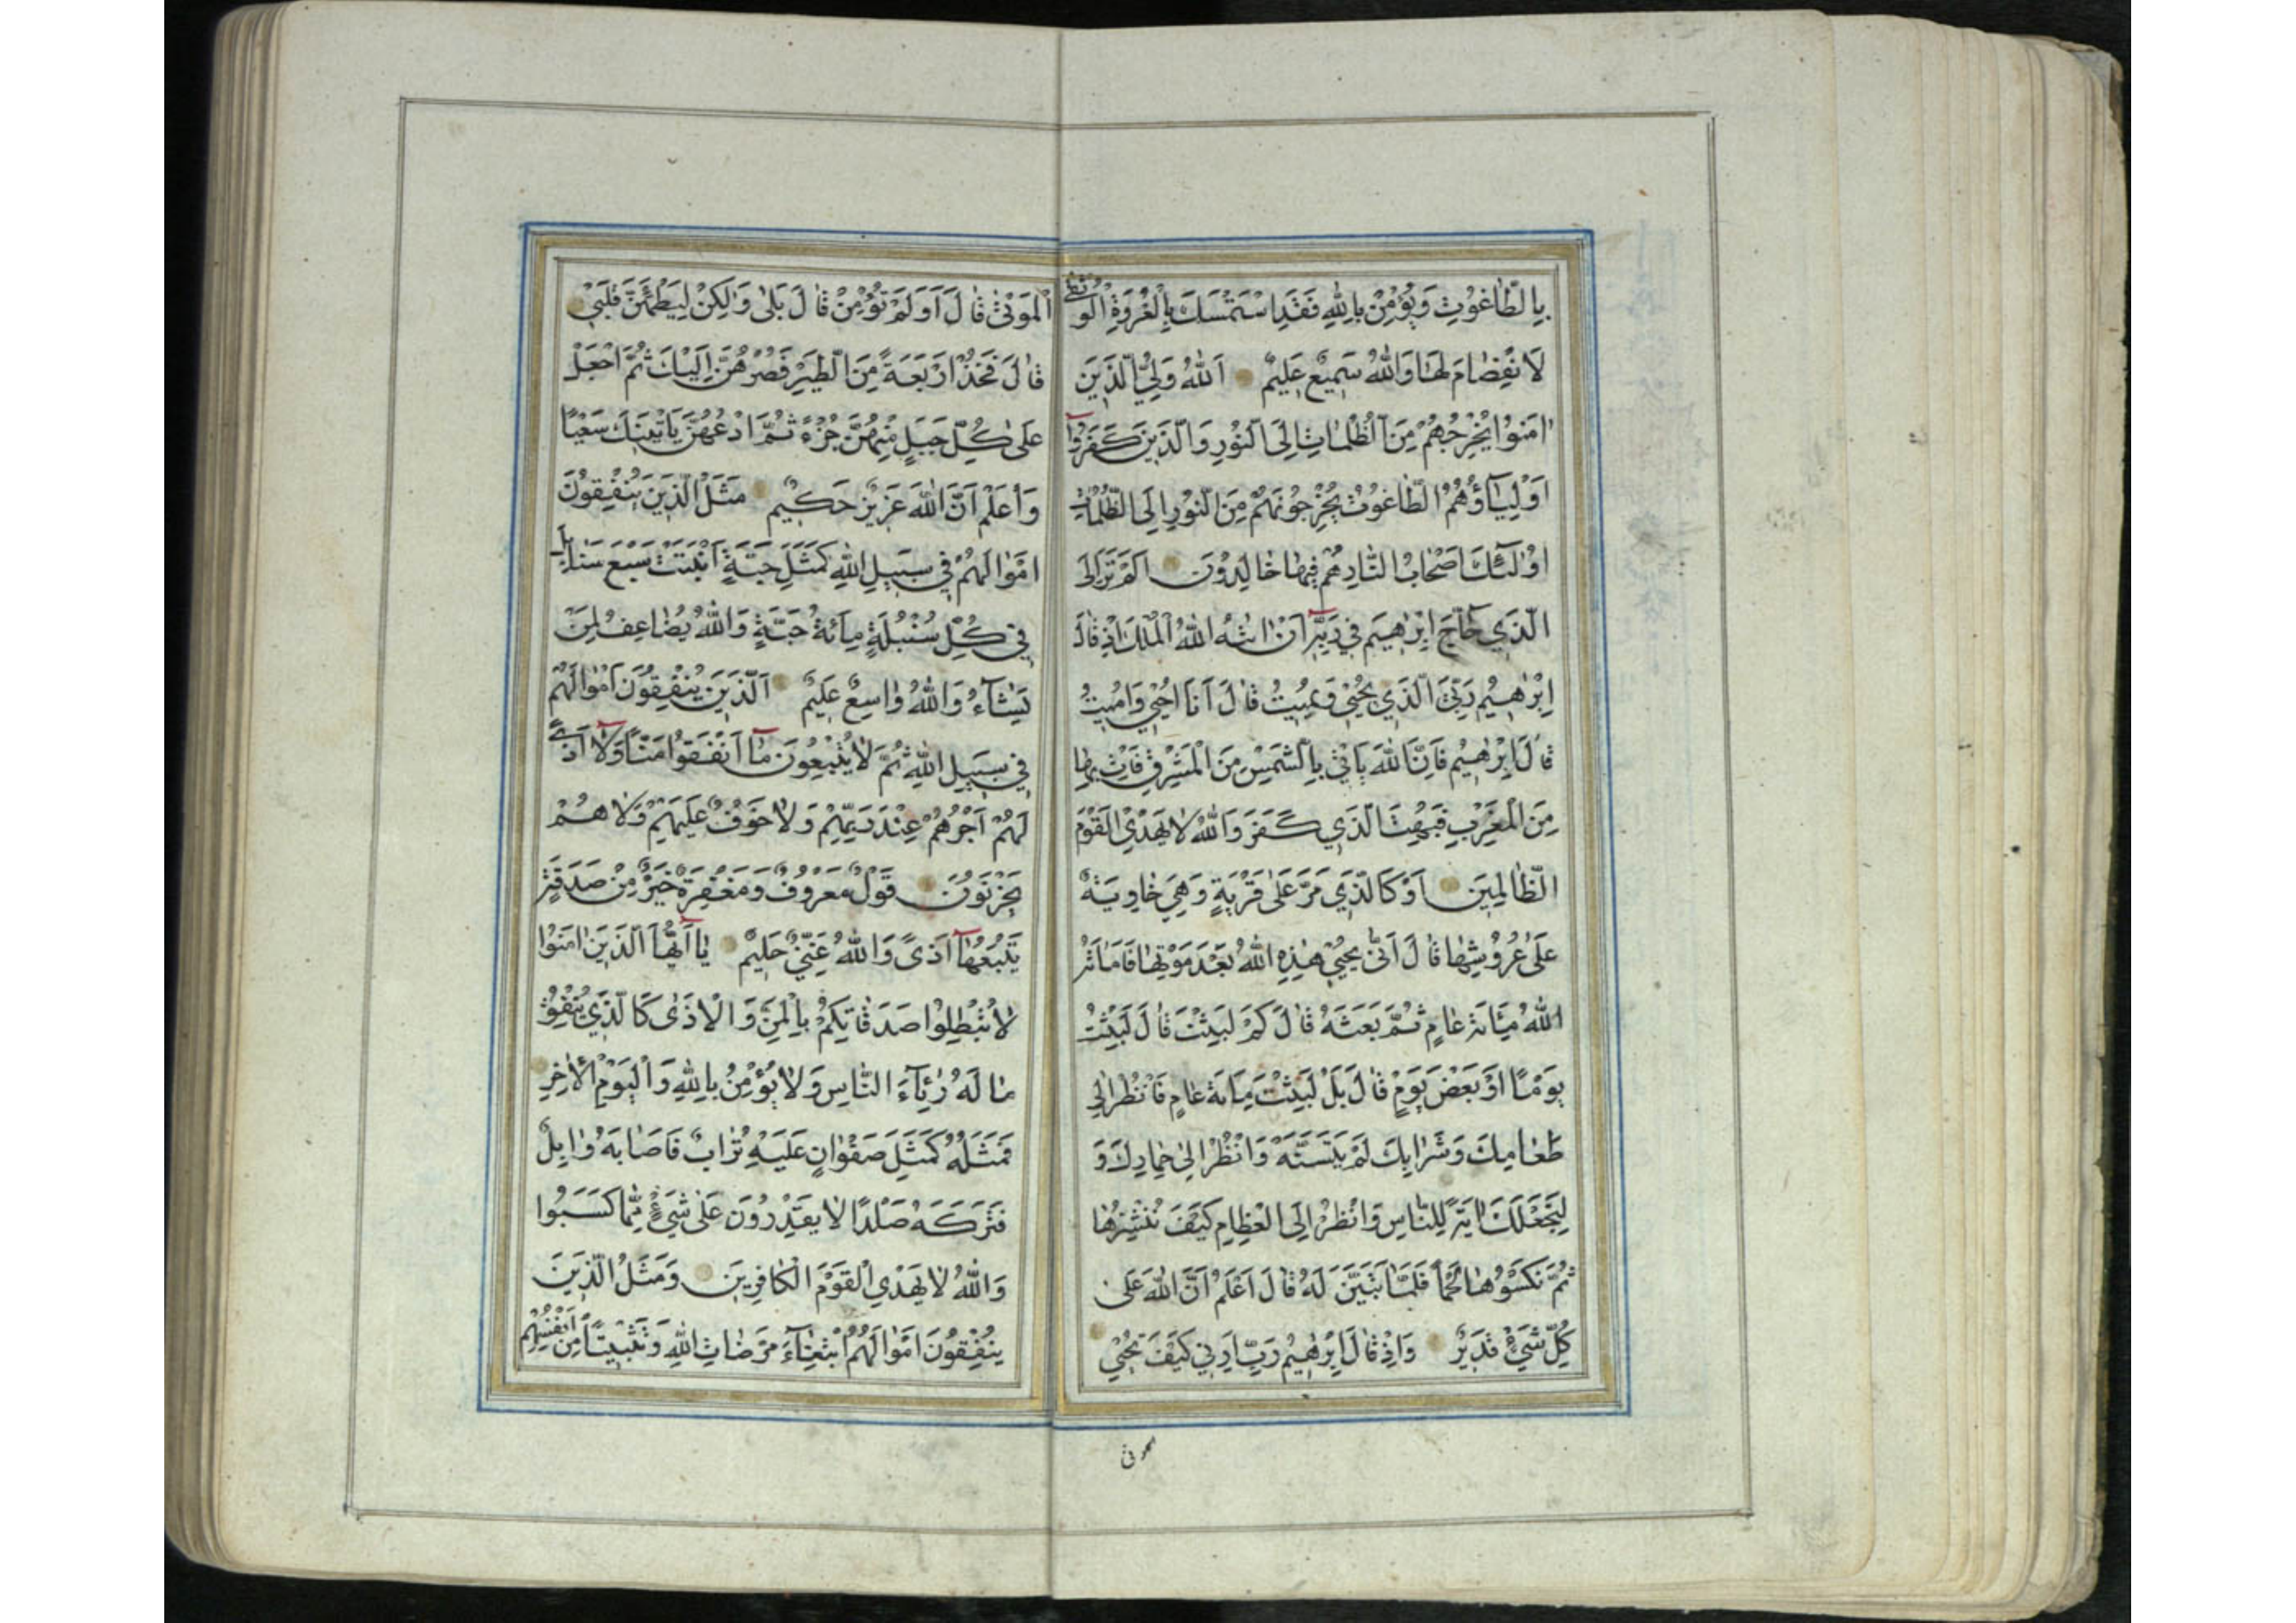 بِالطَّاغُوتِ وَيُؤْمِنْ بِاللّٰهِ فَقَدِ اسْتَمْسَكَ بِالْعُرْوَةِ الْوُثْقٰى
لَا نْفِصَامَ لَهَا وَاللّٰهُ سَمِيعٌ عَلِيمٌ اَللّٰهُ وَلِيُّ الَّذِينَ
اٰمَنُوا يُخْرِجُهُمْ مِنَ الظُّلُمَاتِ اِلَى النُّورِ وَالَّذِينَ كَفَرُوا
اَوْلِيَآؤُهُمُ الطَّاغُوتُ يُخْرِجُونَهُمْ مِنَ النُّورِ اِلَى الظُّلُمَاتِ
اُولٰئِكَ اَصْحَابُ النَّارِ هُمْ فِيهَا خَالِدُونَ اَلَمْ تَرَ اِلَى
الَّذِي حَاجَّ اِبْرٰهِيمَ فِي رَبِّهِ اَنْ اٰتٰيهُ اللّٰهُ الْمُلْكَ اِذْ قَالَ
اِبْرٰهِيمُ رَبِّيَ الَّذِي يُحْيِي وَيُمِيتُ قَالَ اَنَا اُحْيِي وَاُمِيتُ
قَالَ اِبْرٰهِيمُ فَاِنَّ اللّٰهَ يَاْتِي بِالشَّمْسِ مِنَ الْمَشْرِقِ فَاْتِ بِهَا
مِنَ الْمَغْرِبِ فَبُهِتَ الَّذِي كَفَرَ وَاللّٰهُ لَا يَهْدِي الْقَوْمَ
الظَّالِمِينَ اَوْ كَالَّذِي مَرَّ عَلٰى قَرْيَةٍ وَهِيَ خَاوِيَةٌ
عَلٰى عُرُوشِهَا قَالَ اَنّٰى يُحْيِي هٰذِهِ اللّٰهُ بَعْدَ مَوْتِهَا فَاَمَاتَهُ
اللّٰهُ مِائَةَ عَامٍ ثُمَّ بَعَثَهُ قَالَ كَمْ لَبِثْتَ قَالَ لَبِثْتُ
يَوْمًا اَوْ بَعْضَ يَوْمٍ قَالَ بَلْ لَبِثْتَ مِائَةَ عَامٍ فَانْظُرْ اِلٰى
طَعَامِكَ وَشَرَابِكَ لَمْ يَتَسَنَّهْ وَانْظُرْ اِلٰى حِمَارِكَ وَ
لِنَجْعَلَكَ اٰيَةً لِلنَّاسِ وَانْظُرْ اِلَى الْعِظَامِ كَيْفَ نُنْشِزُهَا
ثُمَّ نَكْسُوهَا لَحْمًا فَلَمَّا تَبَيَّنَ لَهُ قَالَ اَعْلَمُ اَنَّ اللّٰهَ عَلٰى
كُلِّ شَيْءٍ قَدِيرٌ وَاِذْ قَالَ اِبْرٰهِيمُ رَبِّ اَرِنِي كَيْفَ تُحْيِي
الْمَوْتٰى قَالَ اَوَلَمْ تُؤْمِنْ قَالَ بَلٰى وَلٰكِنْ لِيَطْمَئِنَّ قَلْبِي
قَالَ فَخُذْ اَرْبَعَةً مِنَ الطَّيْرِ فَصُرْهُنَّ اِلَيْكَ ثُمَّ اجْعَلْ
عَلٰى كُلِّ جَبَلٍ مِنْهُنَّ جُزْءً ثُمَّ ادْعُهُنَّ يَاْتِينَكَ سَعْيًا
وَاعْلَمْ اَنَّ اللّٰهَ عَزِيزٌ حَكِيمٌ مَثَلُ الَّذِينَ يُنْفِقُونَ
اَمْوَالَهُمْ فِي سَبِيلِ اللّٰهِ كَمَثَلِ حَبَّةٍ اَنْبَتَتْ سَبْعَ سَنَابِلَ
فِي كُلِّ سُنْبُلَةٍ مِائَةُ حَبَّةٍ وَاللّٰهُ يُضَاعِفُ لِمَنْ
يَشَآءُ وَاللّٰهُ وَاسِعٌ عَلِيمٌ اَلَّذِينَ يُنْفِقُونَ اَمْوَالَهُمْ
فِي سَبِيلِ اللّٰهِ ثُمَّ لَا يُتْبِعُونَ مَآ اَنْفَقُوا مَنًّا وَلَآ اَذًى
لَهُمْ اَجْرُهُمْ عِنْدَ رَبِّهِمْ وَلَا خَوْفٌ عَلَيْهِمْ وَلَا هُمْ
يَحْزَنُونَ قَوْلٌ مَعْرُوفٌ وَمَغْفِرَةٌ خَيْرٌ مِنْ صَدَقَةٍ
يَتْبَعُهَآ اَذًى وَاللّٰهُ غَنِيٌّ حَلِيمٌ يَآ اَيُّهَا الَّذِينَ اٰمَنُوا
لَا تُبْطِلُوا صَدَقَاتِكُمْ بِالْمَنِّ وَالْاَذٰى كَالَّذِي يُنْفِقُ
مَالَهُ رِئَآءَ النَّاسِ وَلَا يُؤْمِنُ بِاللّٰهِ وَالْيَوْمِ الْاٰخِرِ
فَمَثَلُهُ كَمَثَلِ صَفْوَانٍ عَلَيْهِ تُرَابٌ فَاَصَابَهُ وَابِلٌ
فَتَرَكَهُ صَلْدًا لَا يَقْدِرُونَ عَلٰى شَيْءٍ مِمَّا كَسَبُوا
وَاللّٰهُ لَا يَهْدِي الْقَوْمَ الْكَافِرِينَ وَمَثَلُ الَّذِينَ
يُنْفِقُونَ اَمْوَالَهُمُ ابْتِغَآءَ مَرْضَاتِ اللّٰهِ وَتَثْبِيتًا مِنْ اَنْفُسِهِمْ